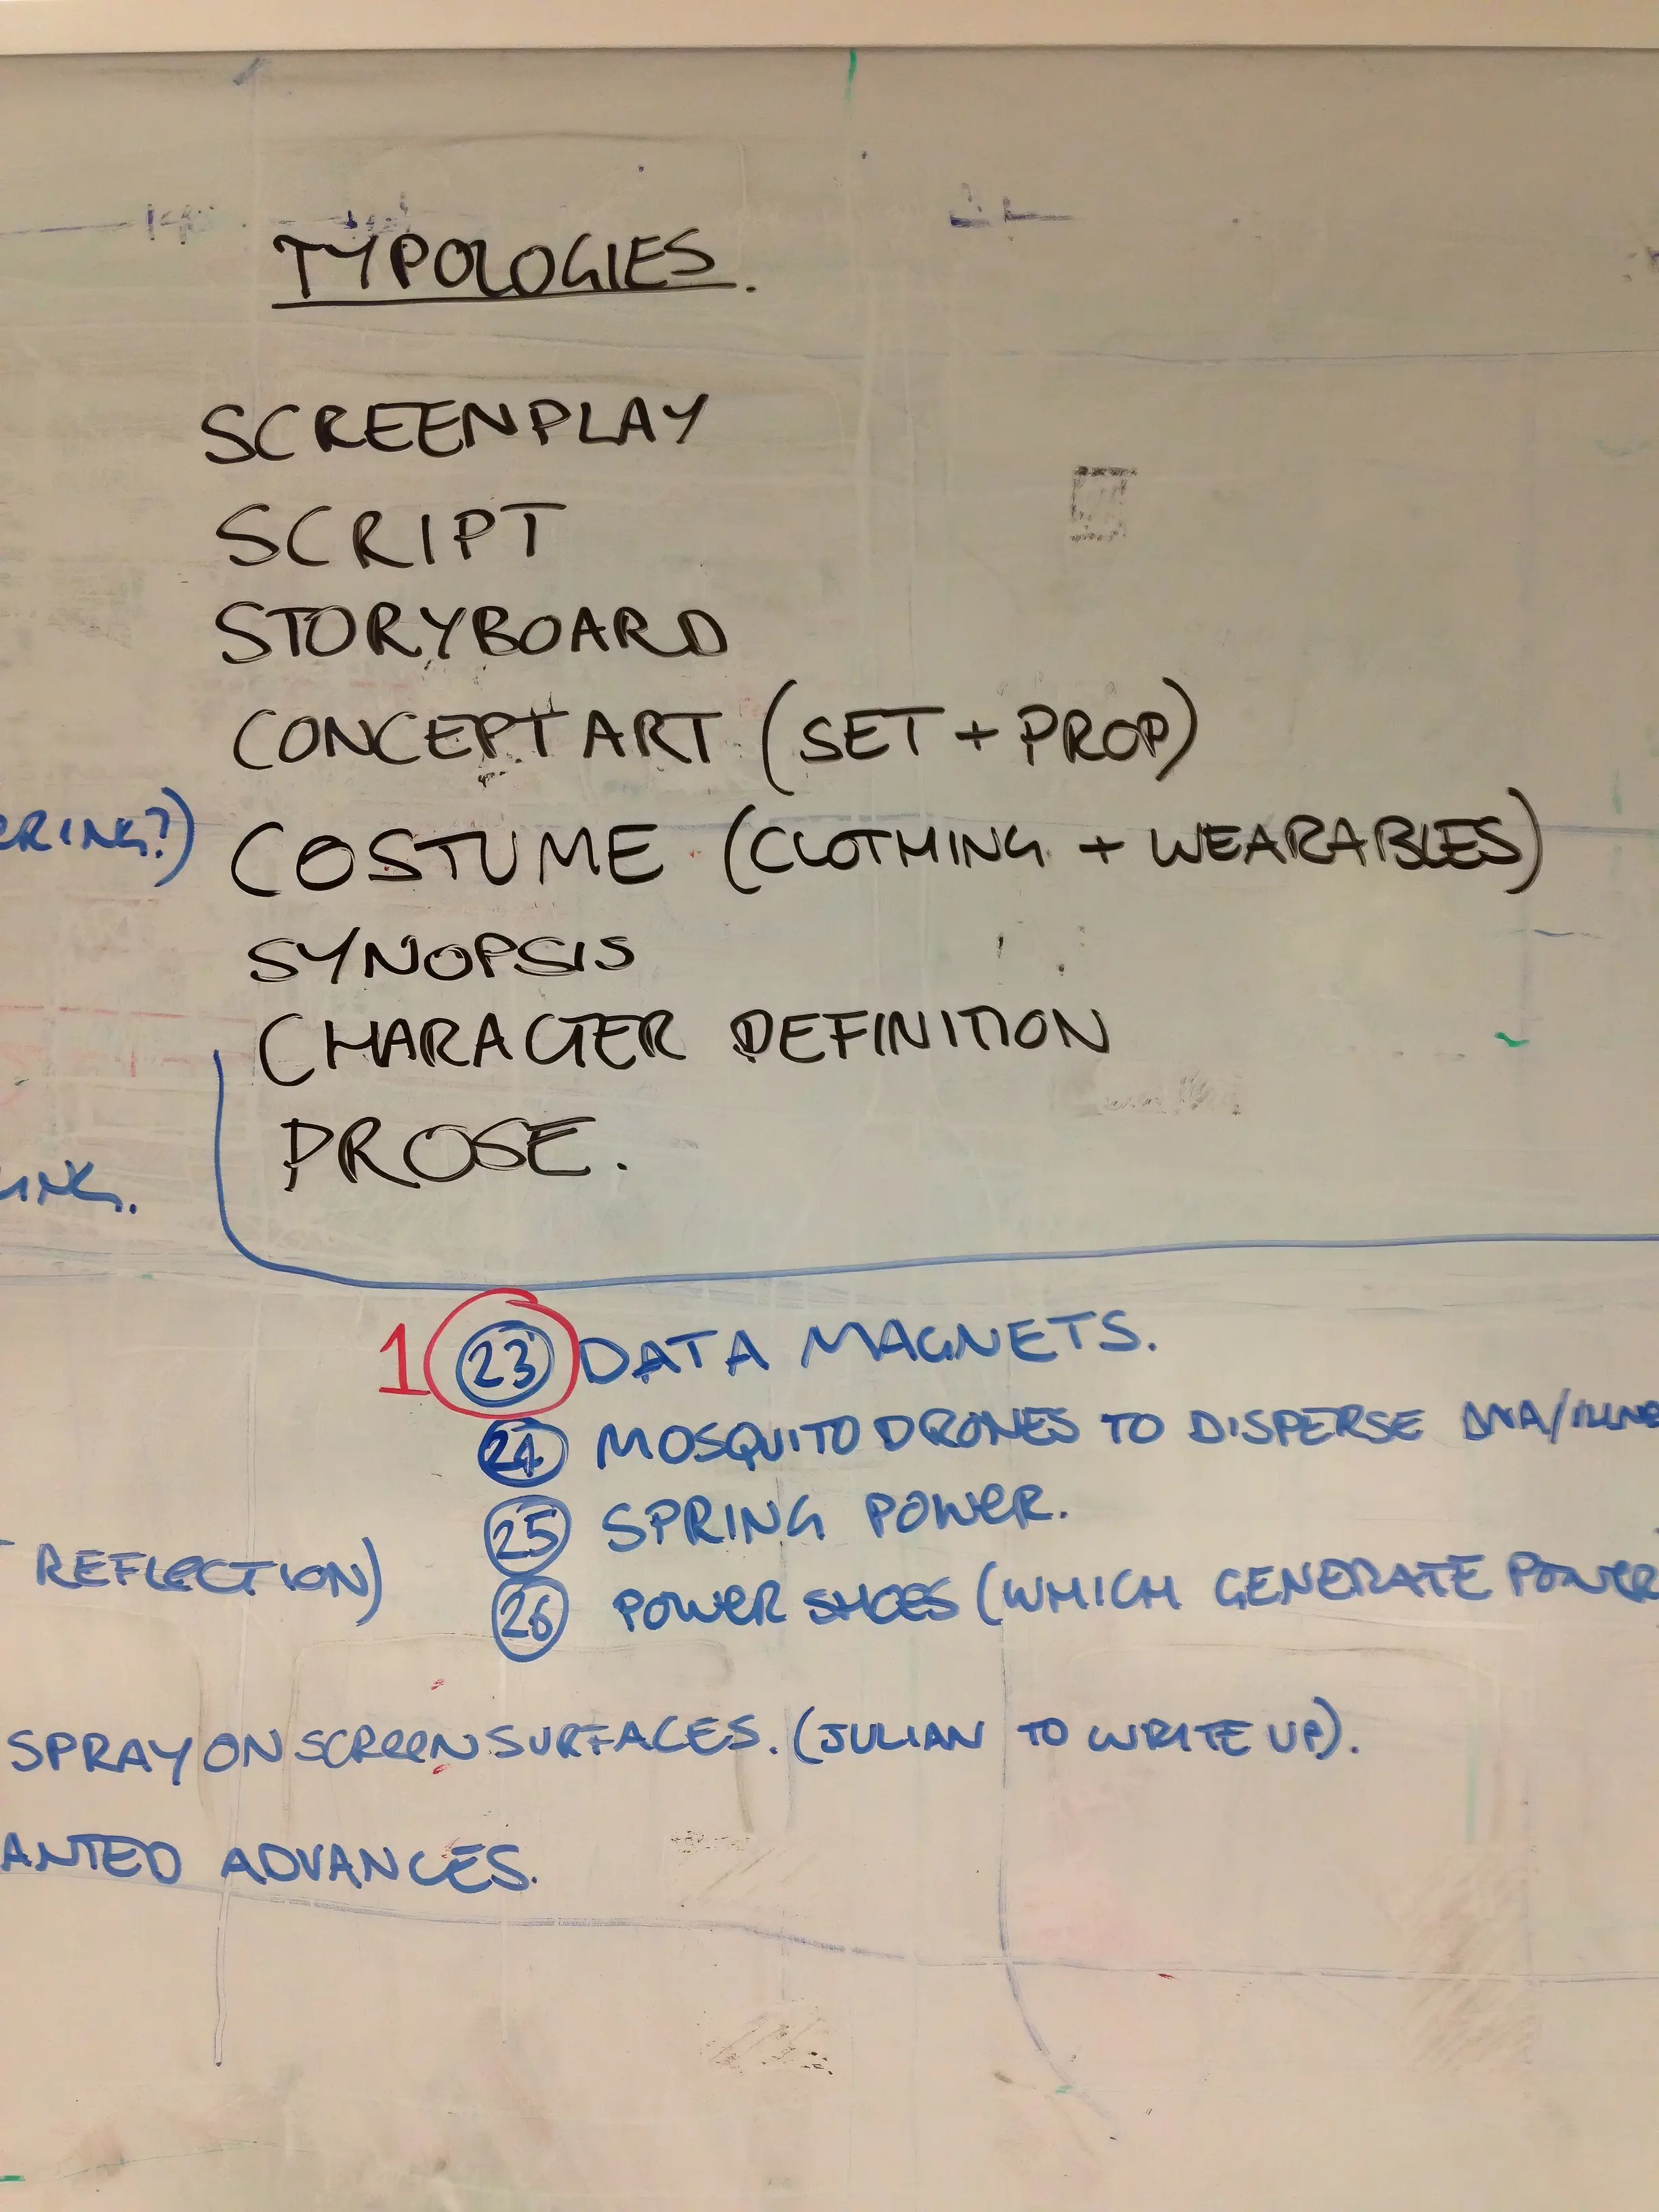 TYPOLOGIES.
SCREENPLAY
SCRIPT
STORYBOARD
CONCEPT ART (SET + PROP)
COSTUME (CLOTHING + WEARABLES)
SYNOPSIS
CHARACTER DEFINITION
PROSE.
1 23 DATA MAGNETS.
24 MOSQUITO DRONES TO DISPERSE DNA/ILLNE
25 SPRING POWER.
REFLECTION)
26 POWER SHOES (WHICH GENERATE POWER
SPRAY ON SCREEN SURFACES. (JULIAN TO WRITE UP).
ANTED ADVANCES.